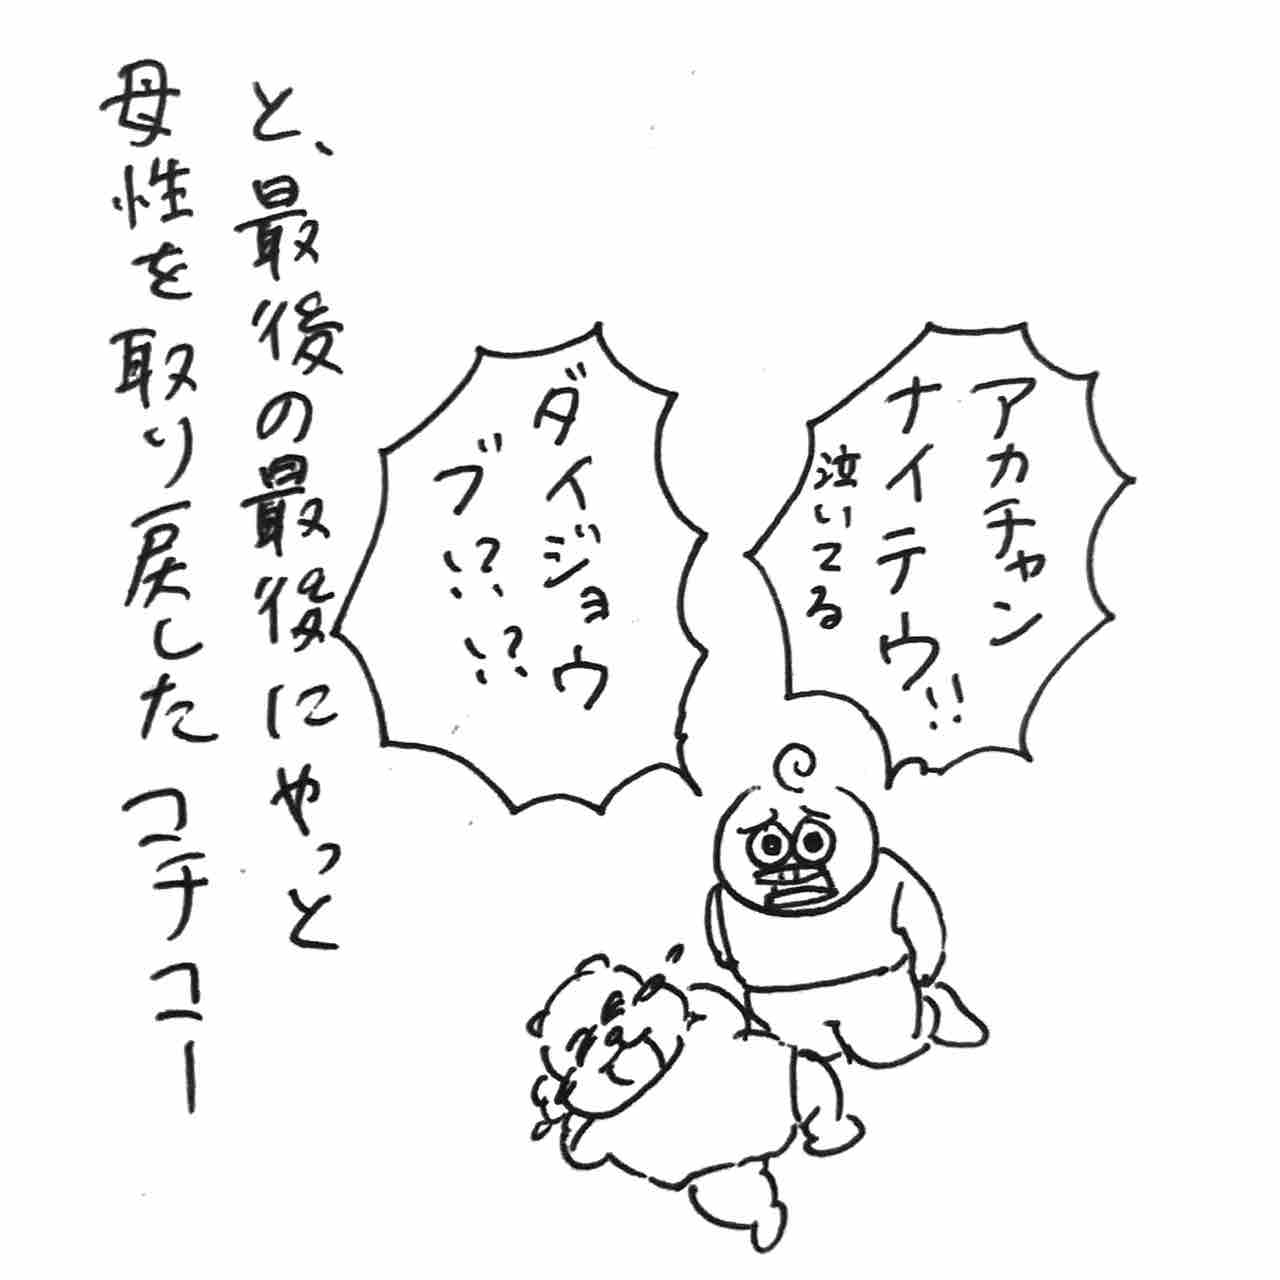 アカチャン
ナイテウ!!
泣いてる
ダイジョウ
ブ!?!?
と、最後の最後にやっと
母性を取り戻したコチコー